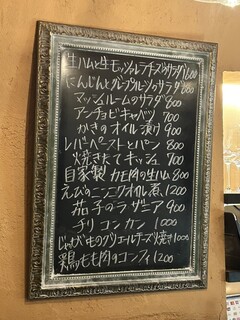 生ハムと生モッツァレラチーズのサラダ 1,600
にんじんとグレープフルーツのサラダ 600
マッシュルームのサラダ 600
アンチョビキャベツ 700
かきのオイル漬け 900
レバーペーストとパン 800
焼きたてキッシュ 700
自家製 カモ肉の生ハム 800
えびのニンニクオイル煮 1,200
茄子のラザニア 900
チリコンカン 1,000
じゃがいものグリエールチーズ焼き 1000
鶏もも肉のコンフィ 1,200